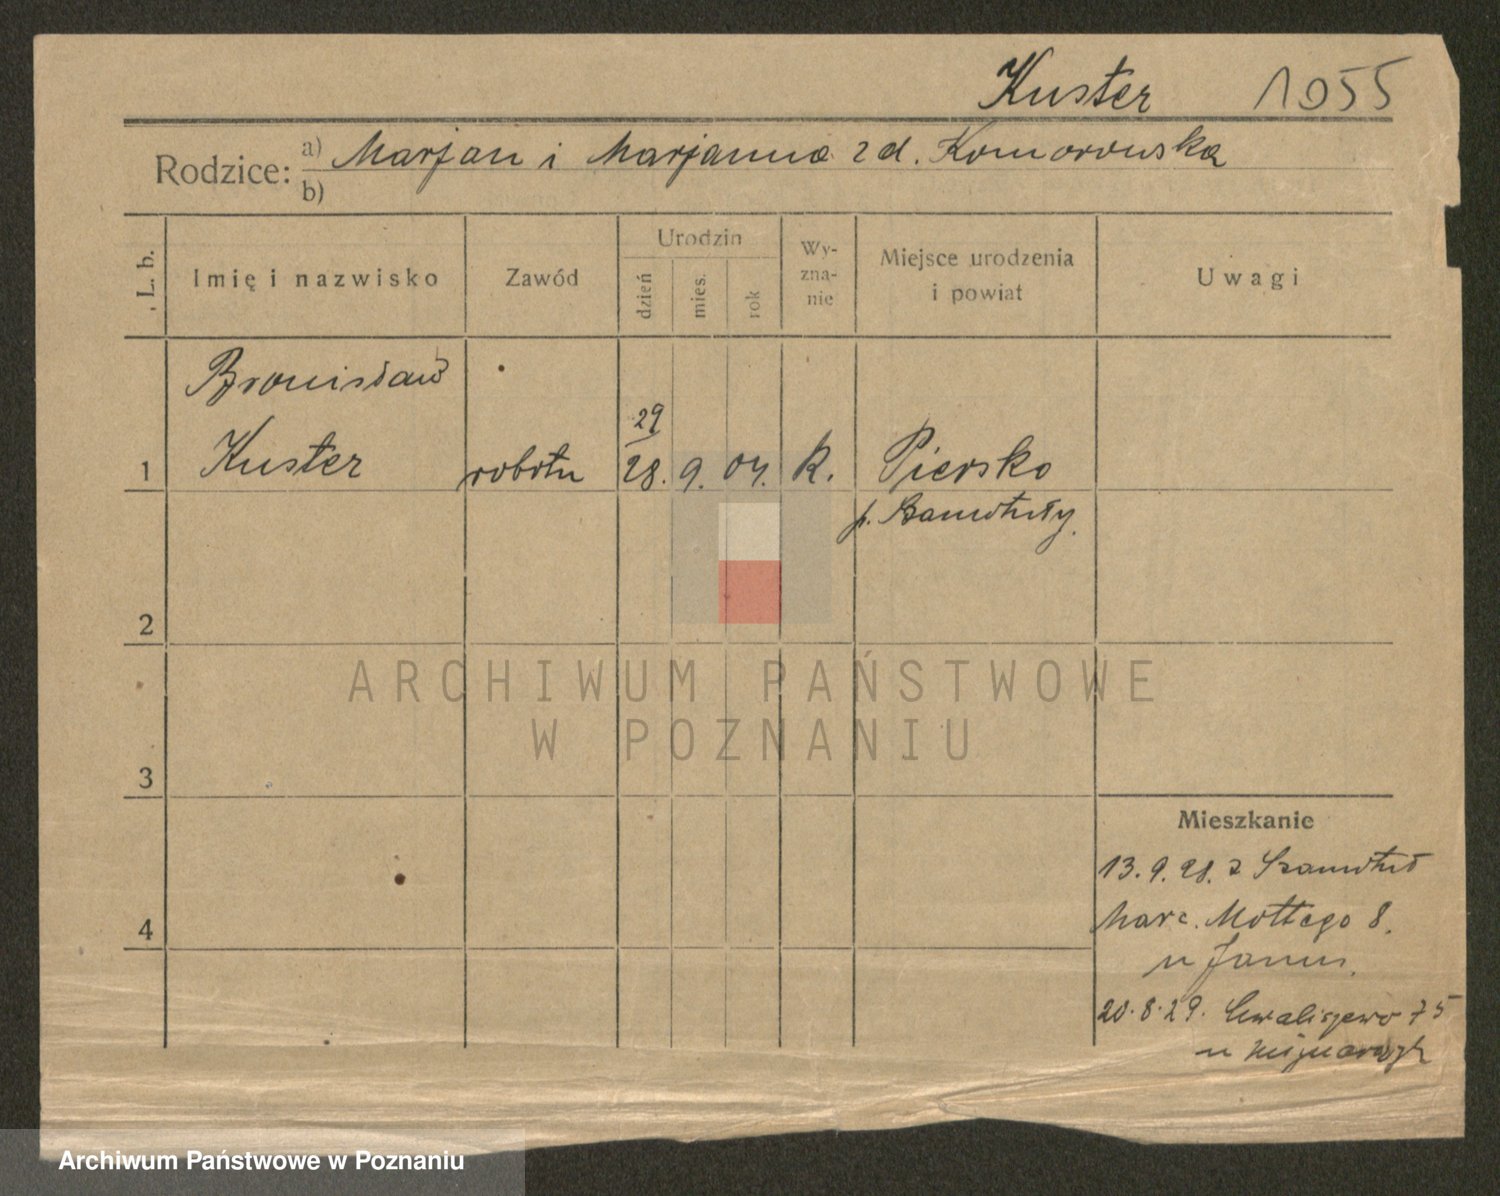 Kuster 1055
Rodzice: a) Marjan i Marjanna z d. Komorowska
b)
L. b. Imię i nazwisko Zawód Urodzin dzień mies. rok Wy-zna-nie Miejsce urodzenia i powiat Uwagi
Bronisław
29
1 Kuster robotn 28. 9. 04. k. Piersko
p. Szamotuły.
2
ARCHIWUM PAŃSTWOWE
W POZNANIU
3
Mieszkanie
13.9.28. z Szamotuł
4 Marc. Mottego 8.
u Janus.
20.8.29. Chwaliszewo 75
u
Archiwum Państwowe w Poznaniu